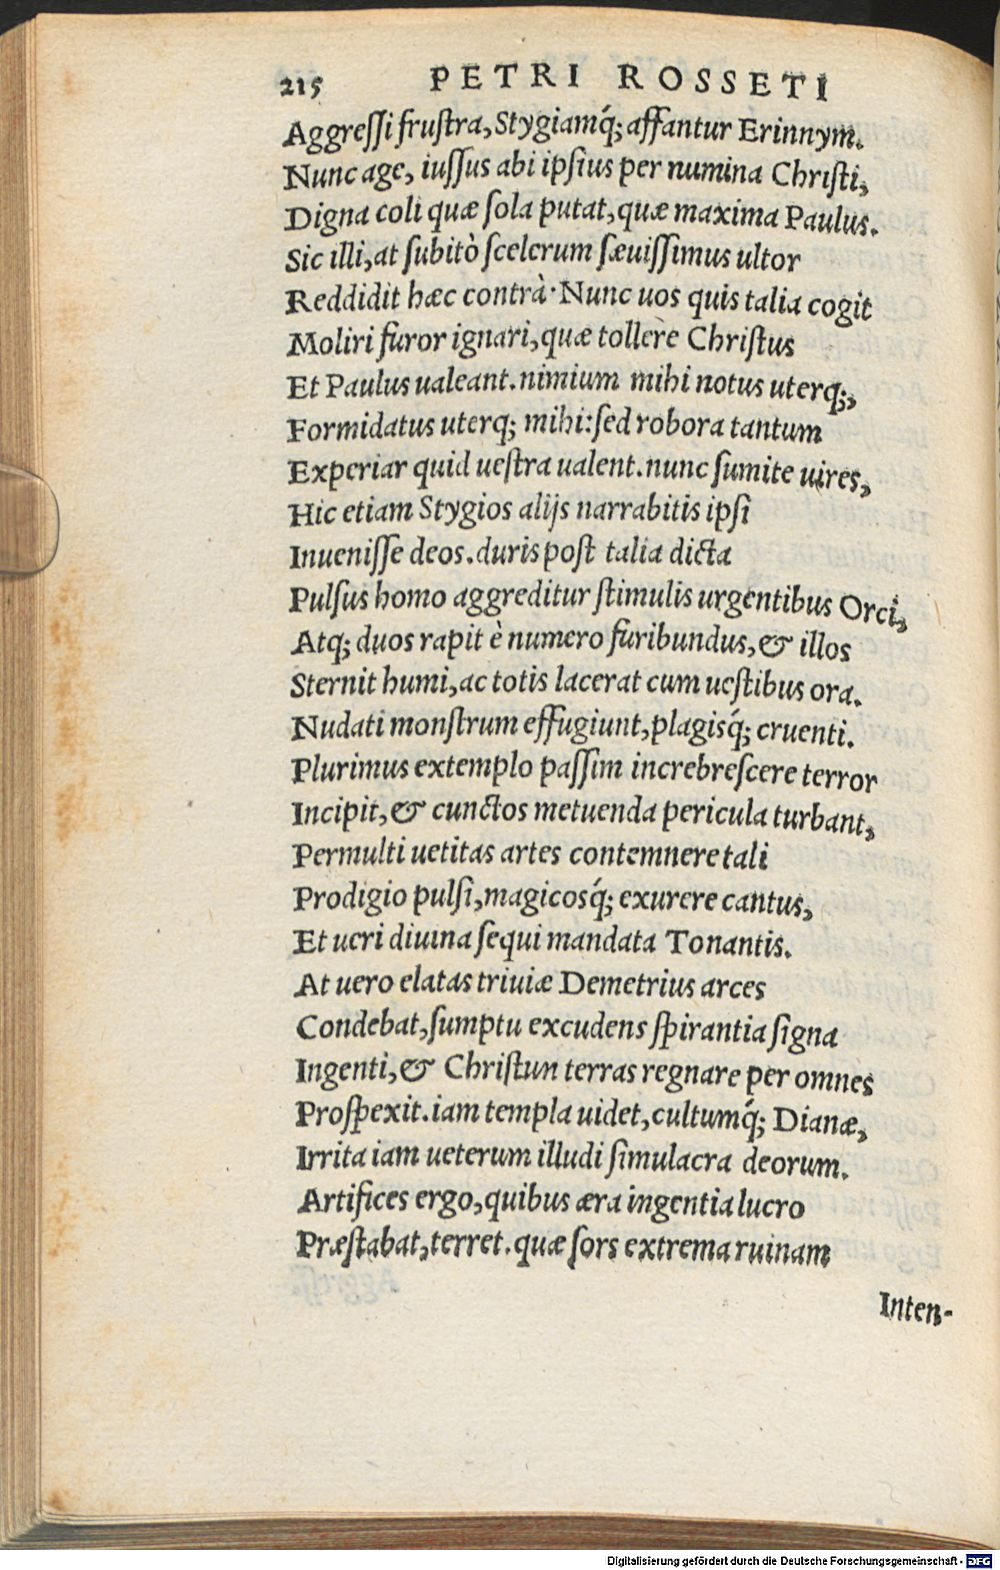 215 PETRI ROSSETI
Aggreſſi fruſtra, Stygiamq́; affantur Erinnym.
Nunc age, iuſſus abi ipſius per numina Chriſti,
Digna coli quæ ſola putat, quæ maxima Paulus.
Sic illi, at ſubitò ſcelerum ſæuiſſimus ultor
Reddidit hæc contrà· Nunc uos quis talia cogit
Moliri furor ignari, quæ tollere Chriſtus
Et Paulus ualeant. nimium mihi notus uterq;,
Formidatus uterq; mihi: ſed robora tantum
Experiar quid ueſtra ualent. nunc ſumite uires,
Hic etiam Stygios alijs narrabitis ipſi
Inueniſſe deos. duris poſt talia dicta
Pulſus homo aggreditur ſtimulis urgentibus Orci,
Atq; duos rapit è numero furibundus, & illos
Sternit humi, ac totis lacerat cum ueſtibus ora.
Nudati monſtrum effugiunt, plagisq́; cruenti.
Plurimus extemplo paſſim increbreſcere terror
Incipit, & cunctos metuenda pericula turbant,
Permulti uetitas artes contemnere tali
Prodigio pulſi, magicosq́; exurere cantus,
Et ueri diuina ſequi mandata Tonantis.
At uero elatas triuiæ Demetrius arces
Condebat, ſumptu excudens ſpirantia ſigna
Ingenti, & Chriſtum terras regnare per omnes
Proſpexit. iam templa uidet, cultumq́; Dianæ,
Irrita iam ueterum illudi ſimulacra deorum.
Artifices ergo, quibus æra ingentia lucro
Præſtabat, terret. quæ ſors extrema ruinam
Inten-
Digitalisierung gefördert durch die Deutsche Forschungsgemeinschaft - DFG